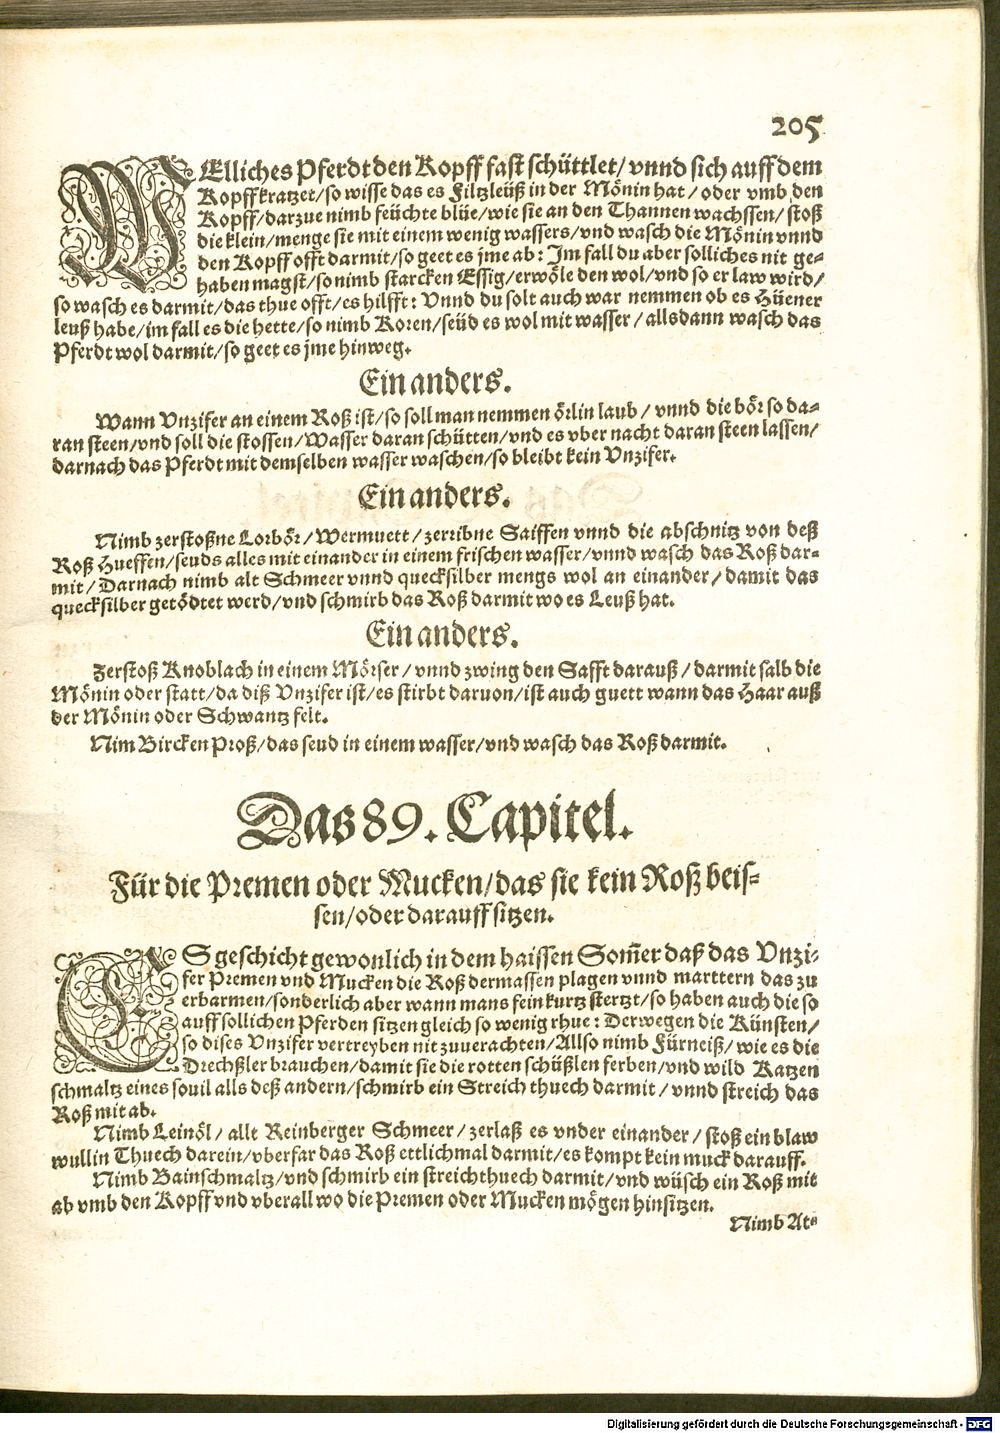 205
WElliches Pferdt den Kopff fast schüttlet/ vnnd sich auff dem
Kopff kratzet/so wisse das es Filtzleüß in der Mönin hat / oder vmb den
Kopff/darzue nimb feüchte blüe/wie sie an den Thannen wachssen/ stoß
die klein/menge sie mit einem wenig wassers/vnd wasch die Mönin vnnd
den Kopff offt darmit/so geet es jme ab: Im fall du aber solliches nit ge-
haben magst/so nimb starcken Essig/erwöle den wol/vnd so er law wird/
so wasch es darmit/das thue offt/es hilfft: Vnnd du solt auch war nemmen ob es Hüener
leuß habe/im fall es die hette/so nimb Koren/seüd es wol mit wasser / allsdann wasch das
Pferdt wol darmit/so geet es jme hinweg.
Ein anders.
Wann Vnzifer an einem Roß ist/so soll man nemmen örlin laub / vnnd die bör so da-
ran steen/vnd soll die stossen/Wasser daran schütten/vnd es vber nacht daran steen lassen/
darnach das Pferdt mit demselben wasser waschen/so bleibt kein Vnzifer.
Ein anders.
Nimb zerstoßne Lorbör/Wermuett/zerribne Saiffen vnnd die abschnitz von deß
Roß Hueffen/seuds alles mit einander in einem frischen wasser/vnnd wasch das Roß dar-
mit/Darnach nimb alt Schmeer vnnd quecksilber mengs wol an einander/damit das
quecksilber getödtet werd/vnd schmirb das Roß darmit wo es Leuß hat.
Ein anders.
Zerstoß Knoblach in einem Mörser / vnnd zwing den Safft darauß / darmit salb die
Mönin oder statt/da diß Vnzifer ist/es stirbt daruon/ist auch guett wann das Haar auß
der Mönin oder Schwantz felt.
Nim Bircken Proß/das seud in einem wasser/vnd wasch das Roß darmit.
Das 89. Capitel.
Für die Premen oder Mucken/das sie kein Roß beis-
sen/oder darauff sitzen.
ES geschicht gewonlich in dem haissen Som̃er daß das Vnzi-
fer Premen vnd Mucken die Roß dermassen plagen vnnd marttern das zu
erbarmen/sonderlich aber wann mans fein kurtz stertzt/so haben auch die so
auff sollichen Pferden sitzen gleich so wenig rhue: Derwegen die Künsten/
so dises Vnzifer vertreyben nit zuuerachten/Allso nimb Fürneiß/wie es die
Drechßler brauchen/damit sie die rotten schüßlen ferben/vnd wild Katzen
schmaltz eines souil alls deß andern/schmirb ein Streich thuech darmit / vnnd streich das
Roß mit ab.
Nimb Leinöl/ allt Reinberger Schmeer/zerlaß es vnder einander/stoß ein blaw
wullin Thuech darein/vberfar das Roß ettlichmal darmit/es kompt kein muck darauff.
Nimb Bainschmaltz/vnd schmirb ein streichthuech darmit/vnd wüsch ein Roß mit
ab vmb den Kopff vnd vberall wo die Premen oder Mucken mögen hinsitzen.
Nimb At-
Digitalisierung gefördert durch die Deutsche Forschungsgemeinschaft - DFG